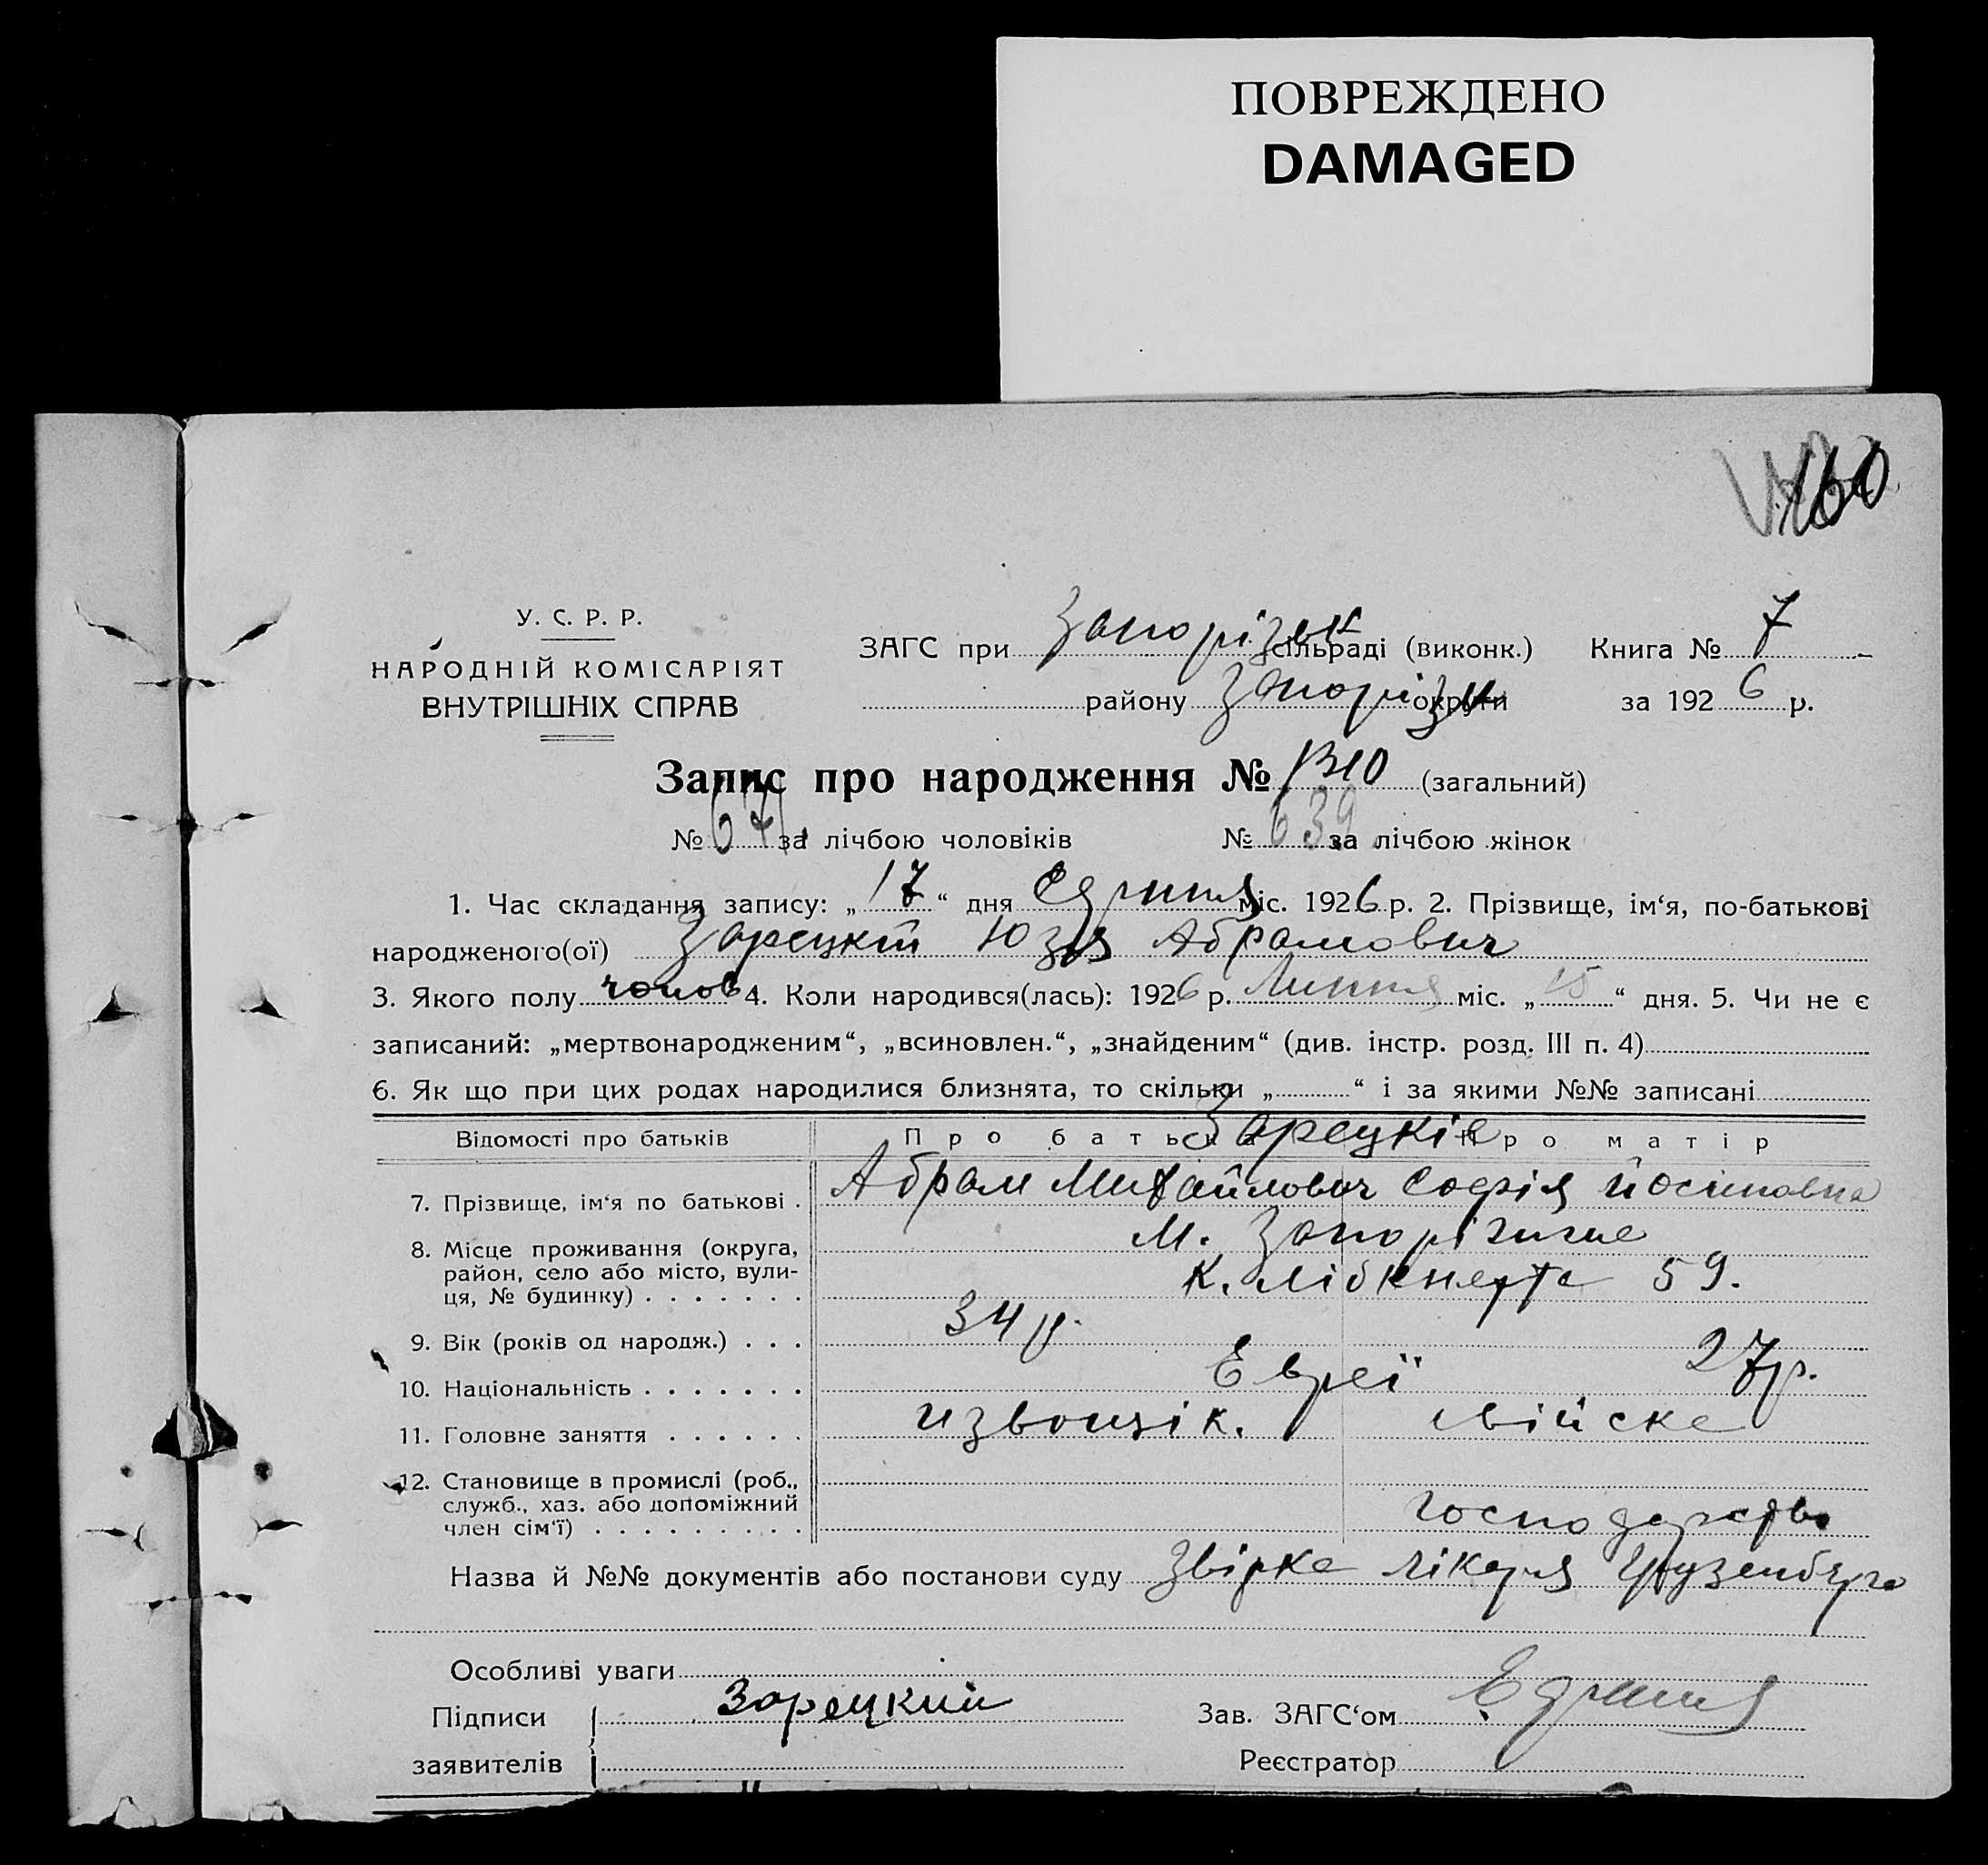 ПОВРЕЖДЕНО
DAMAGED
160
У. С. Р. Р.
НАРОДНІЙ КОМІСАРІЯТ
ВНУТРІШНІХ СПРАВ
ЗАГС при Запорізьк сільраді (виконк.) Книга № 7
району Запорізьк округи за 1926 р.
Запис про народження № 1310 (загальний)
№ 671 за лічбою чоловіків № 639 за лічбою жінок
1. Час складання запису: „17“ дня Серпня міс. 1926 р. 2. Прізвище, ім‘я, по-батькові
народженого(ої) Зарецкій Юзя Абрамович
3. Якого полу чолов 4. Коли народився(лась): 1926 р. Липня міс. „15“ дня. 5. Чи не є
записаний: „мертвонародженим“, „всиновлен.“, „знайденим“ (див. інстр. розд. III п. 4)
6. Як що при цих родах народилися близнята, то скільки „ “ і за якими №№ записані
Відомості про батьків Про батька Про матір
Зарецкіе
7. Прізвище, ім‘я по батькові . Абрам Михайлович Софія Йосиповна
8. Місце проживання (округа, район, село або місто, вулиця, № будинку) . . . . . . . М. Запоріжжє
К. Лібкнехта 59.
9. Вік (років од народж.) . . . 34 р. 27 р.
10. Національність . . . . . . . Евреї
11. Головне заняття . . . . . . извощік.
12. Становище в промислі (роб., служб., хаз. або допоміжний член сім‘ї) . . . . . . . . . господарство
Назва й №№ документів або постанови суду Звірка лікаря Грузенберга
Особливі уваги
Підписи заявителів Зарецкий
Зав. ЗАГС‘ом
Реєстратор